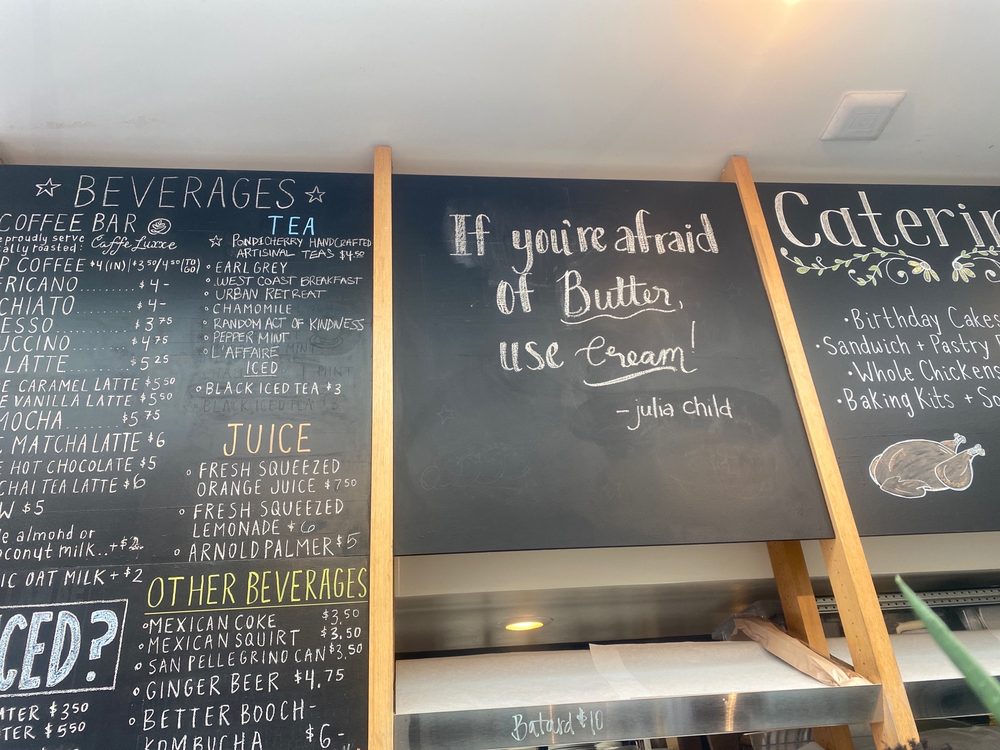 ☆ BEVERAGES ☆
COFFEE BAR
proudly serve
ally roasted: Caffe Luxxe
P COFFEE $4 (IN) | $3.50/4.50 (TO GO)
RICANO......... $4-
CHIATO ......... $4-
ESSO........... $3.75
UCCINO......... $4.75
LATTE ......... $5.25
E CARAMEL LATTE $5.50
E VANILLA LATTE $5.50
MOCHA........ $5.75
MATCHA LATTE $6
E HOT CHOCOLATE $5
CHAI TEA LATTE $6
W $5
almond or
oconut milk..+$2
IC OAT MILK + $2
CED?
ATER $3.50
TER $5.50
TEA
☆ PONDICHERRY HANDCRAFTED
ARTISINAL TEAS $4.50
• EARL GREY
• WEST COAST BREAKFAST
• URBAN RETREAT
• CHAMOMILE
• RANDOM ACT OF KINDNESS
• PEPPER MINT
• L'AFFAIRE
ICED
• BLACK ICED TEA $3
JUICE
• FRESH SQUEEZED
ORANGE JUICE $7.50
• FRESH SQUEEZED
LEMONADE $6
• ARNOLD PALMER $5
OTHER BEVERAGES
• MEXICAN COKE $3.50
• MEXICAN SQUIRT $3.50
• SAN PELLEGRINO CAN $3.50
• GINGER BEER $4.75
• BETTER BOOCH-
KOMBUCHA $6-
If you're afraid
of Butter,
use Cream!
- julia child
Caterin
• Birthday Cakes
• Sandwich + Pastry
• Whole Chickens
• Baking Kits + So
Batard $10